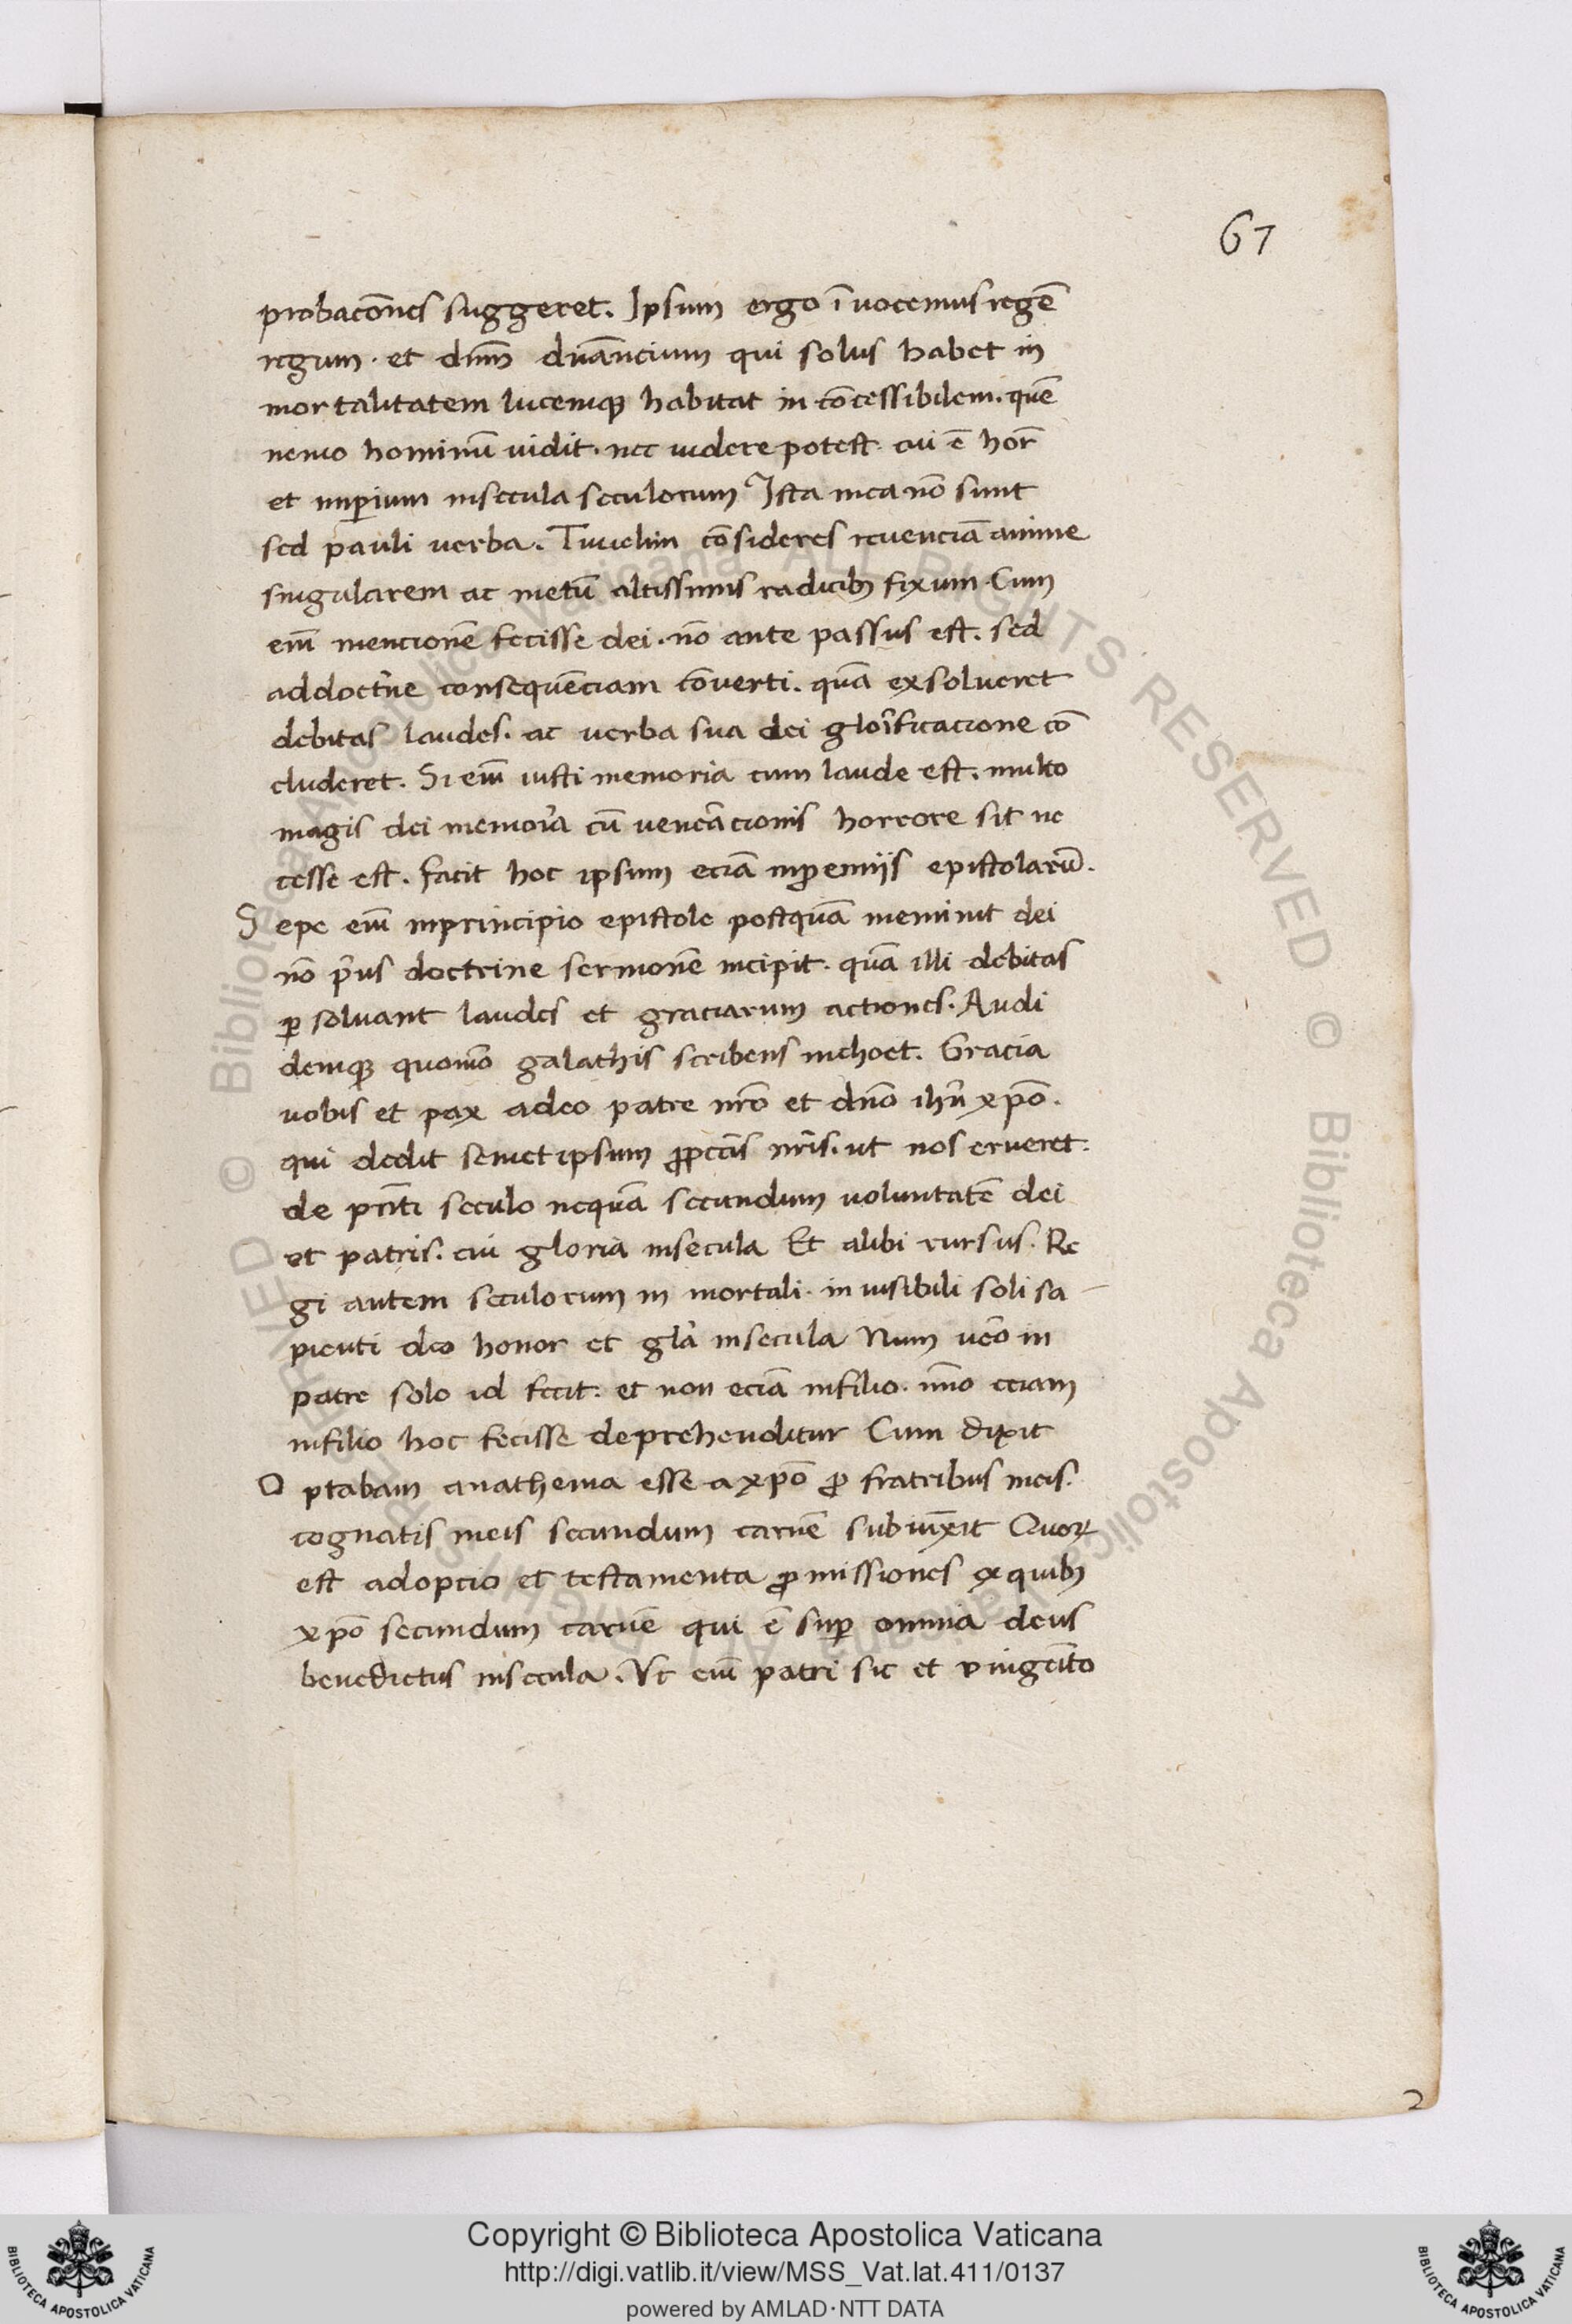 67
probacōnes suggeret. Ipsum ergo īuocemus regē
regum. et dnm̄ dnāncium qui solus habet in
mortalitatem lucemqꝫ habitat in cōcessibilem. quē
nemo hominū uidit. nec uidere potest. cui ē hor̄
et imꝑium insecula seculorum Ista mea nō sunt
sed pauli uerba. Tu uelim cōsideres reuenciā anime
singularem ac metū altissimis radicibꝫ fixum. Cum
enī mencionē fecisse dei. nō ante passus est. sed
addoctrīne consequēciam cōuerti. quā exsolueret
debitas laudes. ac uerba sua dei glorīficacione cō
cluderet. Si enī iusti memoria cum laude est. multo
magis dei memorīa cū uenerācionis horrore sit ne
cesse est. facit hoc ipsum eciā inꝓemijs epistolarū.
Sepe enī inprincipio epistole postquā meminit dei
nō pīus doctrine sermonē incipit. quā illi debitas
ꝑsoluant laudes et graciarum actiones. Audi
deniqꝫ quomō galathis scribens inchoet. Gracia
uobis et pax adeo patre nrō et dnō ihū xpō.
qui dedit semet ipsum ꝓpctīs nrīs. ut nos erueret.
de pn̄ti seculo nequā secundum uoluntatē dei
et patris. cui gloria insecula Et alibi rursus. Re
gi autem seculorum in mortali. in uisibili soli sa-
pienti deo honor et glā insecula Num uēo in
patre solo id fecit. et non eciā infilio. immō eciam
infilio hoc fecisse deprehenditur Cum dixit
Optabam anathema esse a xpō ꝓ fratribus meis.
cognatis meis secundum carnē subiūxit Quoꝝ
est adopcio et testamenta ꝓmissiones exquibꝫ
xpō secundum carnē qui ē suꝑ omnia deus
benedictus insecula. Ut enī patri sic et vnigēito
2
© Biblioteca Apostolica Vaticana ALL RIGHTS RESERVED © Biblioteca Apostolica Vaticana ALL RIGHTS RESERVED
Copyright © Biblioteca Apostolica Vaticana
http://digi.vatlib.it/view/MSS_Vat.lat.411/0137
powered by AMLAD·NTT DATA
BIBLIOTECA APOSTOLICA VATICANA
BIBLIOTECA APOSTOLICA VATICANA